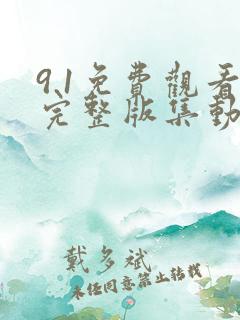 9.1免費觀看
完整版集動
戴多斌
未径同意禁止转载